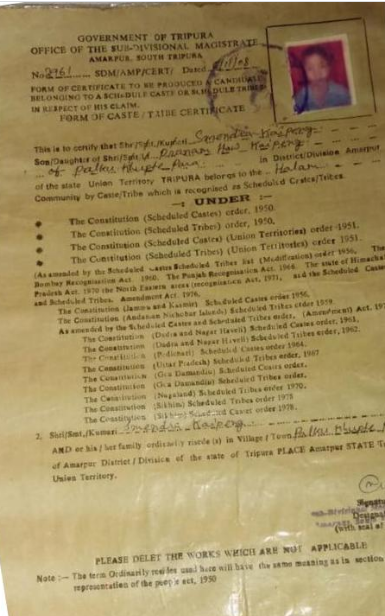 GOVERNMENT OF TRIPURA
OFFICE OF THE SUB-DIVISIONAL MAGISTRATE
AMARPUR, SOUTH TRIPURA
No. SDM/AMP/CERT/ Dated
FORM OF CERTIFICATE TO BE PRODUCED A CANDIDATE
BELONGING TO A SCHEDULE CASTE OR SCHEDULE TRIBES
IN RESPECT OF HIS CLAIM.
FORM OF CASTE / TAIBE CERTIFICATE
This is to certify that Shri/Smt/Kumari Smendra Kaipeng
Son/Daughter of Shri/Smt Kaipeng
of Palku Para in District/Division Amarpur
of the state Union Territory TRIPURA belongs to the Halam
Community by Caste/Tribe which is recognised as Scheduled Castes/Tribes.
—: UNDER :—
The Constitution (Scheduled Castes) order, 1950.
The Constitution (Scheduled Tribes) order, 1950.
The Constitution (Scheduled Castes) (Union Territories) order-1951.
The Constitution (Scheduled Tribes) (Union Territories) order 1951.
(As amended by the Scheduled Castes Scheduled Tribes list (Modification) order 1956, The
Bombay Recognisation Act. 1960. The Punjab Recognisation Act. 1966. The state of Himachal
Pradesh Act. 1970 the North Eastern areas (recognisation Act, 1971, and the Scheduled Castes
and Scheduled Tribes. Amendment Act. 1976.
The Constitution (Jammu and Kasmir) Scheduled Castes order 1956.
The Constitution (Andaman Nichobar Islands) Scheduled Tribes order 1959.
As amended by the Scheduled Castes and Scheduled Tribes order, (Amendment) Act. 197
The Constitution (Dadra and Nagar Haveli) Scheduled Castes order, 1962.
The Constitution (Dadra and Nagar Haveli) Scheduled Tribes order, 1962.
The Constitution (Pudicheri) Scheduled Castes order 1964.
The Constitution (Uttar Pradesh) Scheduled Tribes order, 1967
The Constitution (Goa Damandiu) Scheduled Castes order.
The Constitution (Goa Damandiu) Scheduled Tribes order.
The Constitution (Nagaland) Scheduled Tribes order 1970.
The Constitution (Sikkim) Scheduled Tribes order 1978
The Constitution (Sikkim) Scheduled Castes order 1978.
2. Shri/Smt./Kumari Smendra Kaipeng
AND or his / her family ordinarily riside (s) in Village / Town Palku
of Amarpur District / Division of the state of Tripura PLACE Amarpur STATE T
Union Territory.
Signatu
Designat
(with seal of
PLEASE DELET THE WORKS WHICH ARE NOT APPLICABLE
Note :— The term Ordinarily resides used here will have the same meaning as in section
representation of the people act, 1950